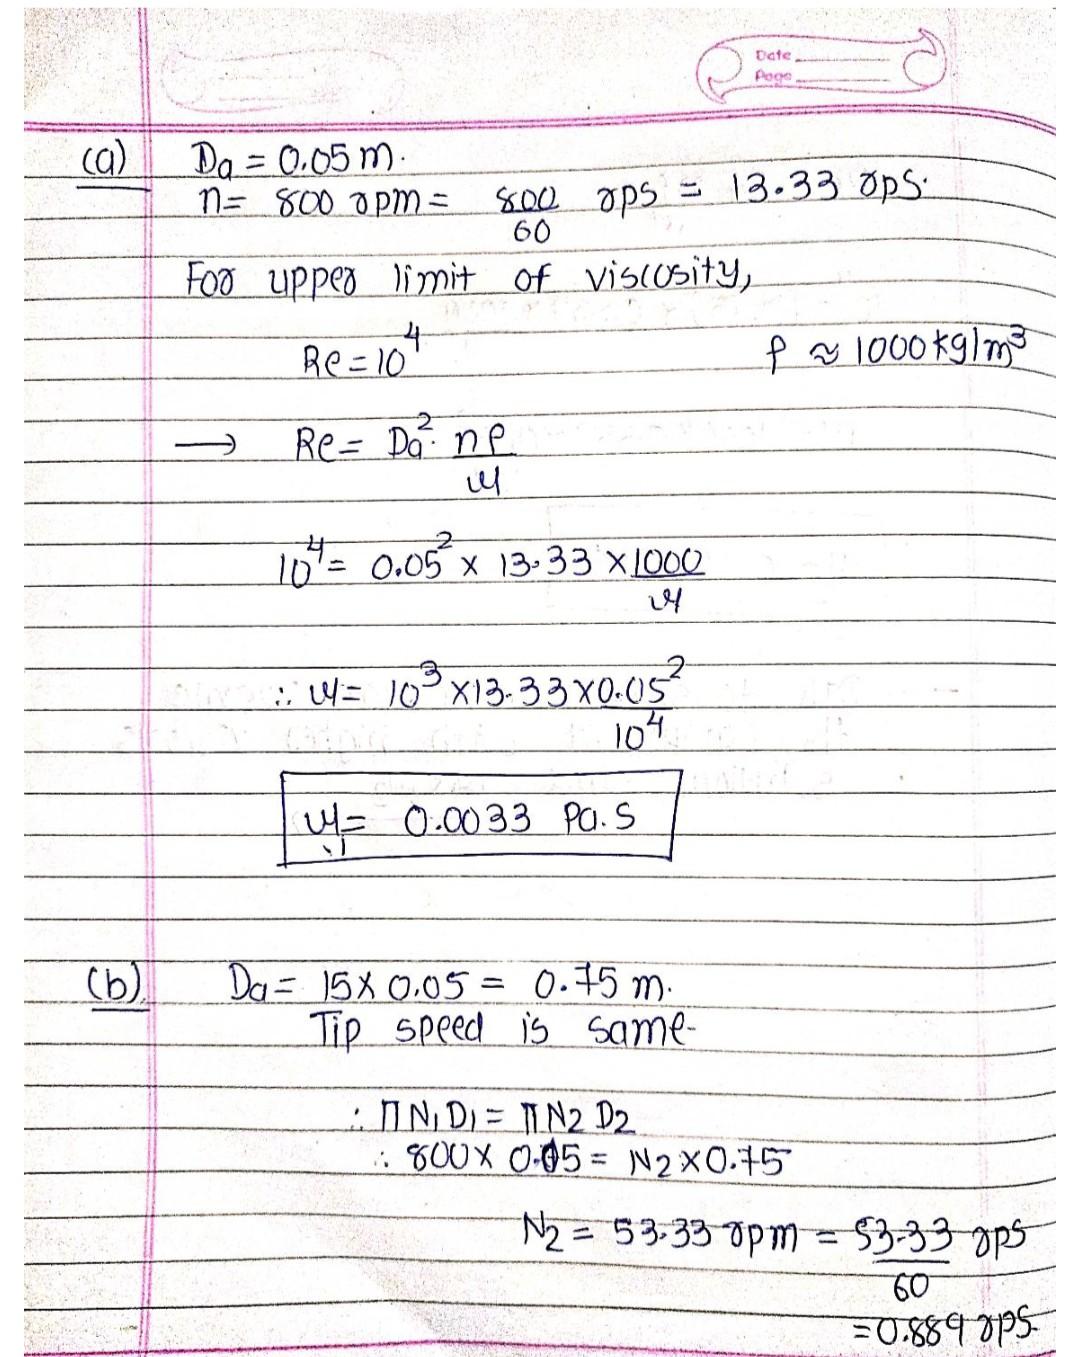 Date
Page
(a) Da = 0.05 m.
n = 800 rpm = 800/60 rps = 13.33 rps.
For upper limit of viscosity,
Re = 10^4 ρ ≈ 1000 kg/m^3
→ Re = Da^2 . nρ/μ
10^4 = 0.05^2 × 13.33 × 1000/μ
∴ μ = 10^3 × 13.33 × 0.05^2/10^4
μ = 0.0033 Pa.s
(b) Da = 15 × 0.05 = 0.75 m.
Tip speed is same-
∴ π N1 D1 = π N2 D2
∴ 800 × 0.05 = N2 × 0.75
N2 = 53.33 rpm = 53.33/60 rps
= 0.889 rps.